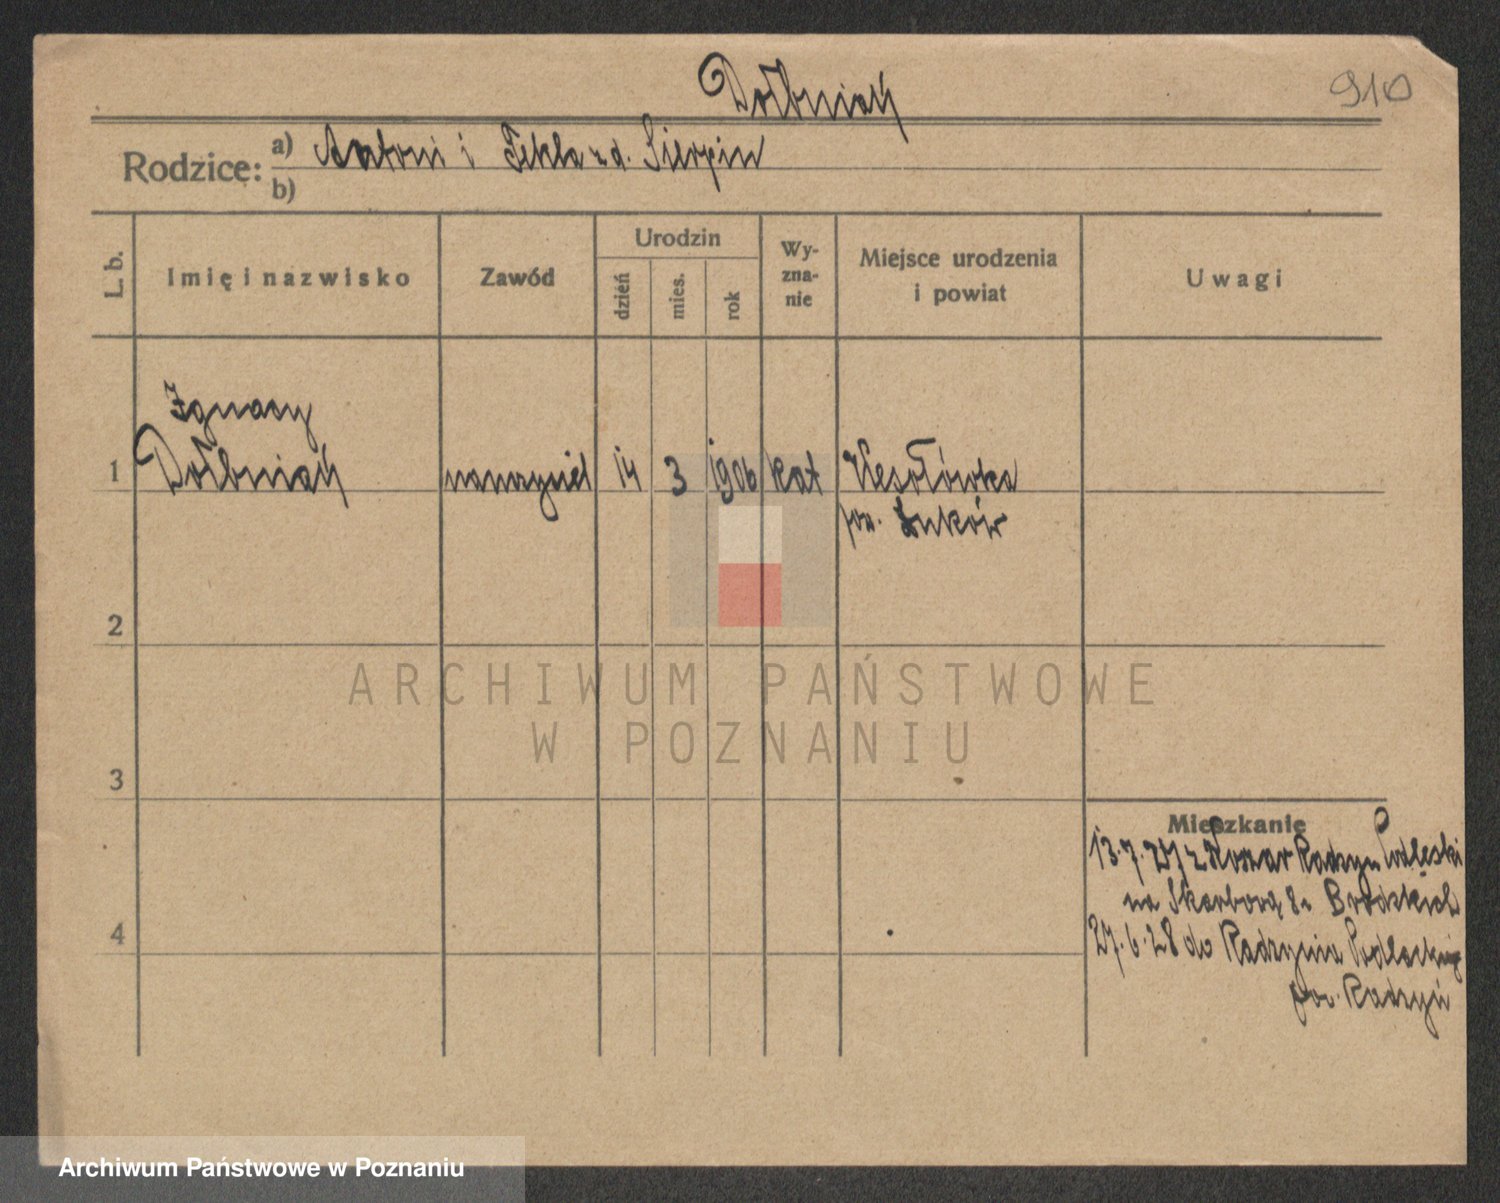 Dołbniak
910
Rodzice: a) Antoni i Tekla z d. Sierpin
b)
L. b.
Imię i nazwisko
Zawód
Urodzin
dzień
mies.
rok
Wy-
zna-
nie
Miejsce urodzenia
i powiat
Uwagi
Ignacy
1 Dołbniak nauczyciel 14 3 1906 kat Wesołówka
pow. Łuków
2
ARCHIWUM PAŃSTWOWE
W POZNANIU
3
4
Mieszkanie
13.7.27 z Radzyn Podlaski
na Skarbową 8
27.6.28 do Radzynia Podlaskiego
pow. Radzyń
Archiwum Państwowe w Poznaniu